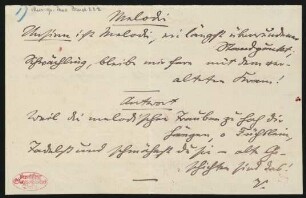 Melodi
Unsinn ist Melodi, ein längst überwundener
Standpunkt.
Schwächling, bleibe mir fern mit dem ver-
alteten Kram!
Antwort
Weil die melodischen Trauben zu hoch dir
hängen, o Füchslein,
Tadelst und schmähest du sie – alte Ge-
schichten sind das!